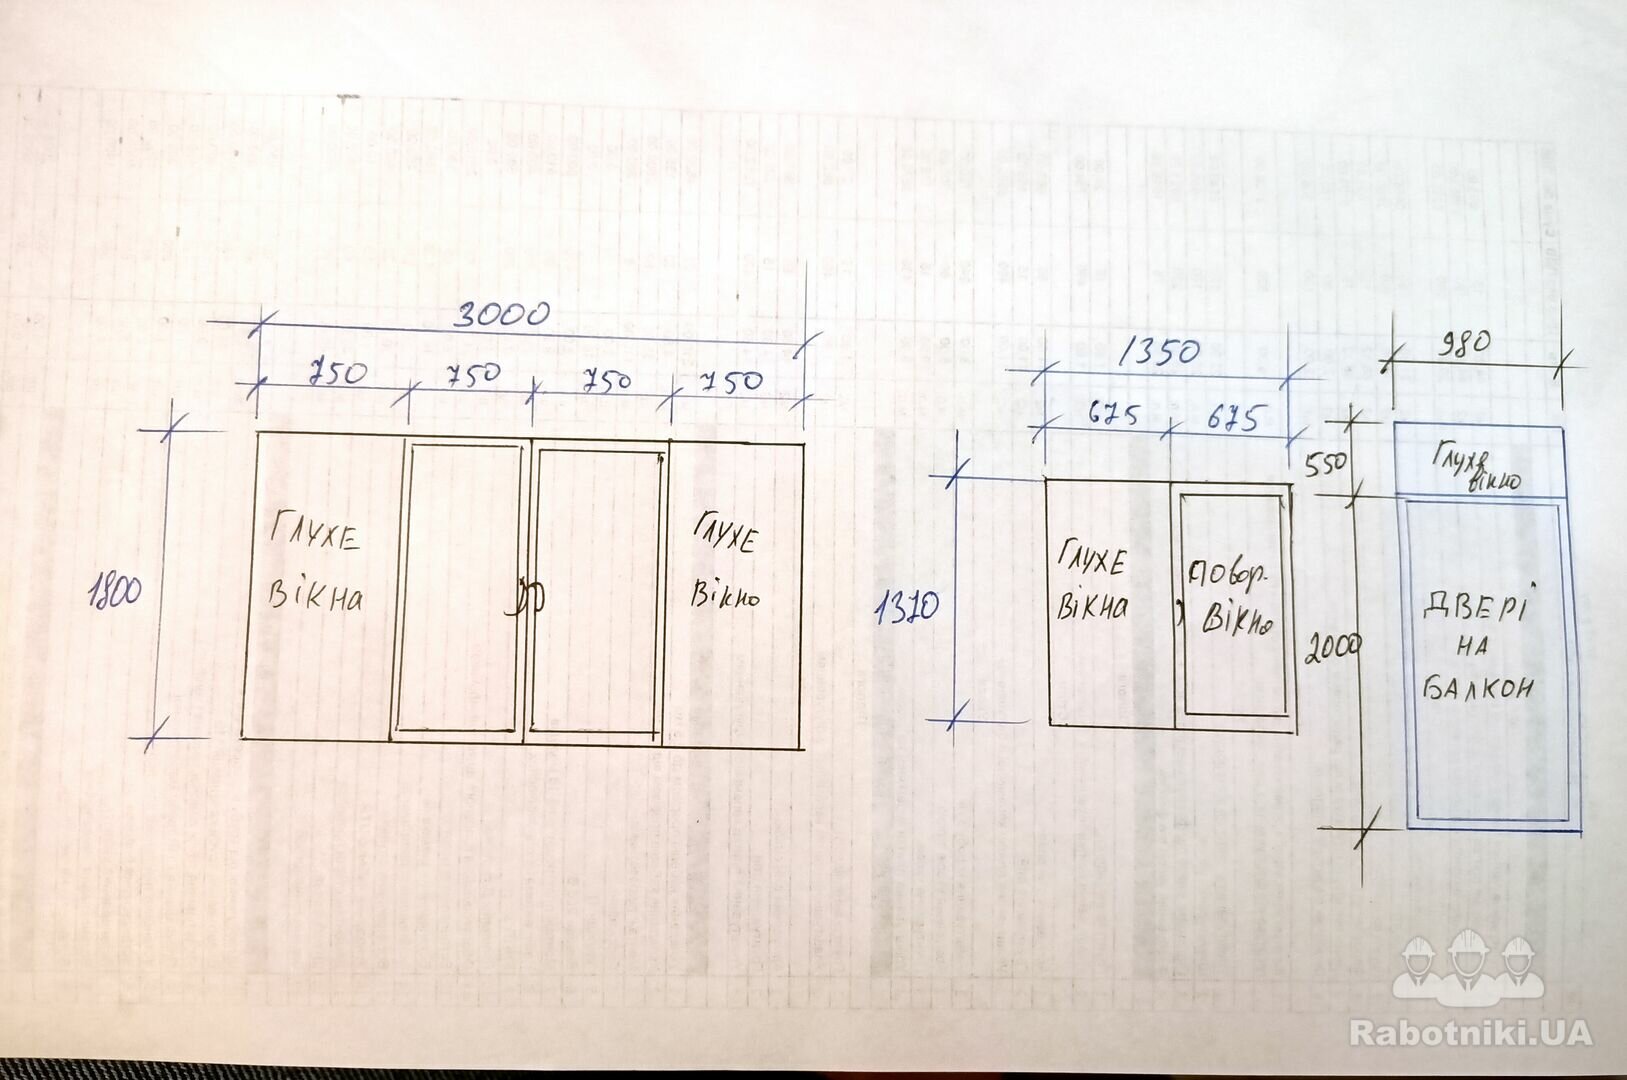 3000
750 750 750 750
1800
ГЛУХЕ
ВІКНА
ГЛУХЕ
ВІКНО
1350
675 675
1370
ГЛУХЕ
ВІКНА
ПОВОР.
ВІКНО
980
550
2000
Глухе
вікно
ДВЕРІ
НА
БАЛКОН
Rabotniki.UA